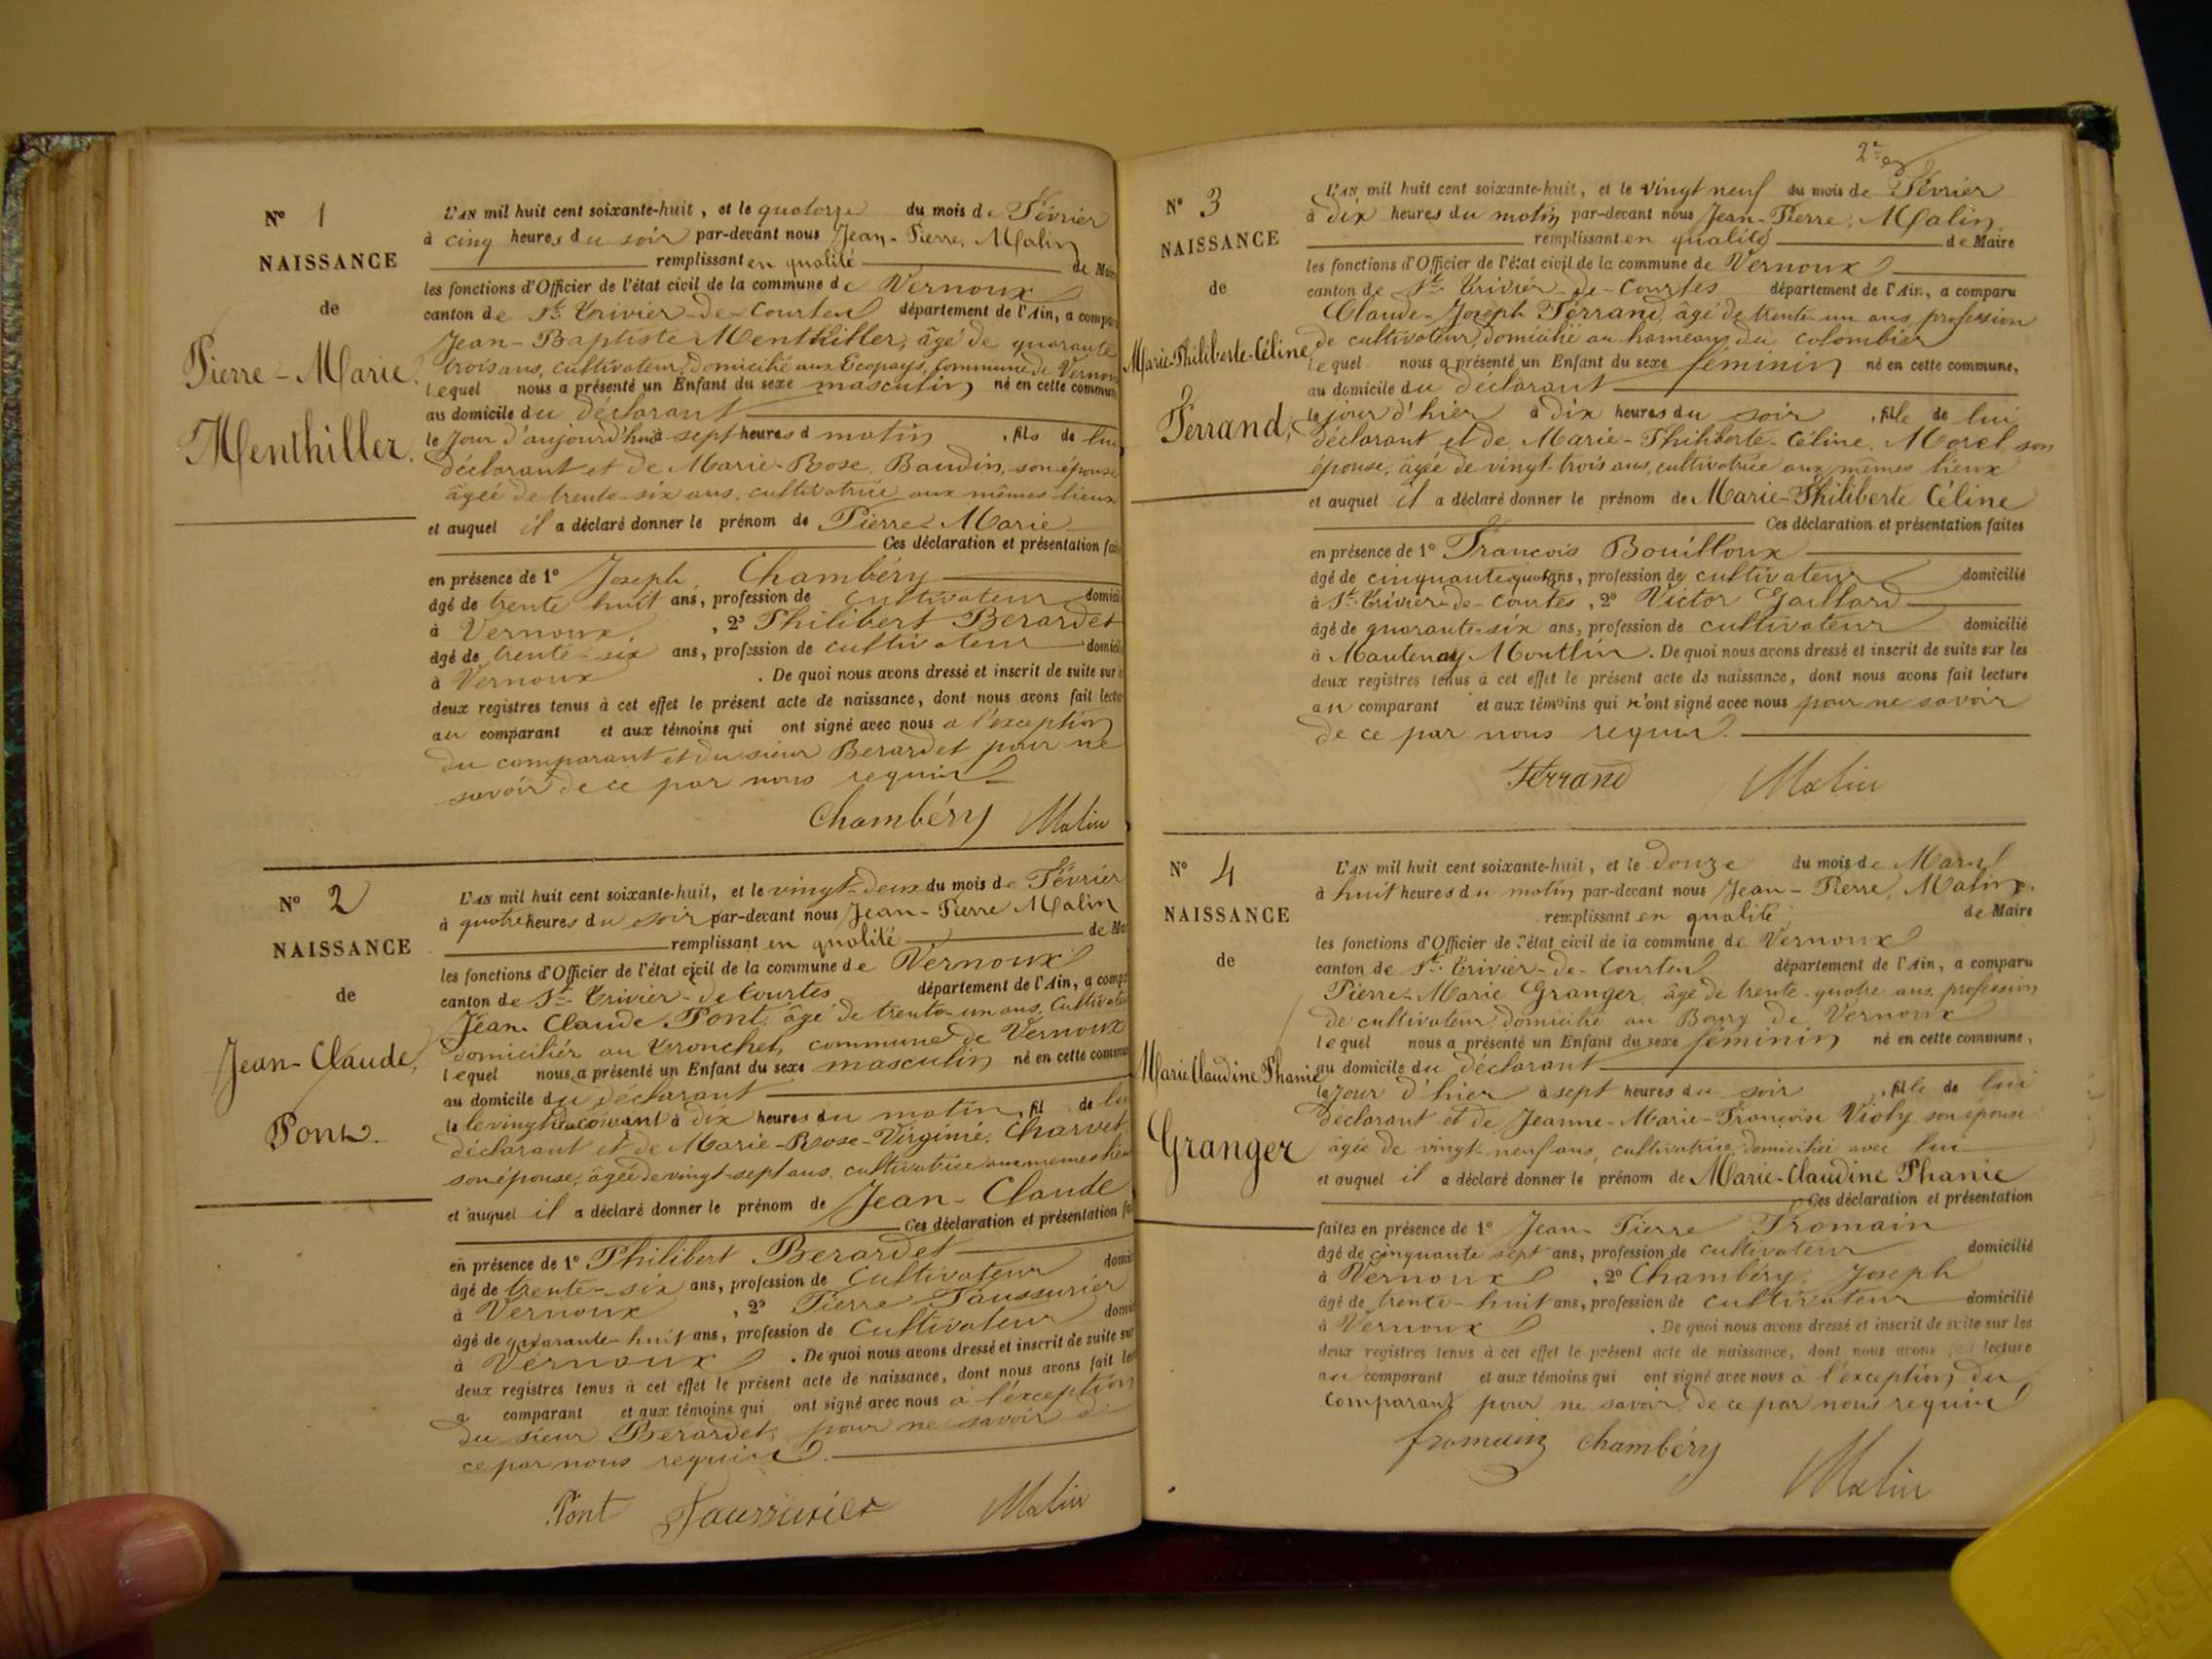 N° 1
NAISSANCE
de
Pierre-Marie
Menthiller.
L'AN mil huit cent soixante-huit, et le quatorze du mois de Février
à cinq heures du soir par-devant nous Jean-Pierre, Malin
remplissant en qualité de
les fonctions d'Officier de l'état civil de la commune de Vernoux
canton de St Trivier-de-Courtes département de l'Ain, a
Jean-Baptiste Menthiller, âgé de quarante
trois ans, cultivateur, domicilié aux Ecopays, commune de Vernoux
lequel nous a présenté un Enfant du sexe masculin né en cette
au domicile du déclarant
le jour d'aujourd'hui à sept heures d matin, fils de lui
déclarant et de Marie-Rose, Baudin, son épouse
âgée de trente-six ans, cultivatrice aux mêmes lieux
et auquel il a déclaré donner le prénom de Pierre-Marie
Ces déclaration et présentation
en présence de 1° Joseph, Chambéry
âgé de trente huit ans, profession de cultivateur
à Vernoux, 2° Philibert Berardet
âgé de trente-six ans, profession de cultivateur
à Vernoux. De quoi nous avons dressé et inscrit de suite sur
deux registres tenus à cet effet le présent acte de naissance, dont nous avons fait
au comparant et aux témoins qui ont signé avec nous à l'exception
du comparant et du sieur Berardet pour ne
savoir de ce par nous requis
Chambéry Malin
N° 2
NAISSANCE
de
Jean-Claude,
Pont.
L'AN mil huit cent soixante-huit, et le vingt-deux du mois de Février
à quatre heures du soir par-devant nous Jean-Pierre Malin
remplissant en qualité de
les fonctions d'Officier de l'état civil de la commune de Vernoux
canton de St Trivier-de Courtes département de l'Ain, a
Jean-Claude, Pont, âgé de trente-un ans,
domiciliér au Tronchet, commune de Vernoux
lequel nous a présenté un Enfant du sexe masculin né en cette
au domicile du déclarant
le courant à dix heures du matin, fil de
déclarant et de Marie-Rose-Virginie, Charvet,
son épouse, âgée de vingt-sept ans, cultivatrice
et auquel il a déclaré donner le prénom de Jean-Claude
Ces déclaration et présentation
en présence de 1° Philibert Berardet
âgé de trente-six ans, profession de Cultivateur
à Vernoux, 2° Pierre Paussurier
âgé de quarante-huit ans, profession de Cultivateur
à Vernoux. De quoi nous avons dressé et inscrit de suite sur
deux registres tenus à cet effet le présent acte de naissance, dont nous avons fait
a comparant et aux témoins qui ont signé avec nous à l'exception
du sieur Berardet, pour ne savoir de
ce par nous requis.
Pont Malin
N° 3
NAISSANCE
de
Marie-Philiberte-Céline
Ferrand,
L'AN mil huit cent soixante-huit, et le vingt neuf du mois de Février
à dix heures du matin par-devant nous Jean-Pierre, Malin
remplissant en qualité de Maire
les fonctions d'Officier de l'état civil de la commune de Vernoux
canton de St Trivier-de-Courtes département de l'Ain, a comparu
Claude-Joseph Ferrand, âgé de trente-un ans, profession
de cultivateur, domicilié au hameau du Colombier
lequel nous a présenté un Enfant du sexe féminin né en cette commune,
au domicile du déclarant
le jour d'hier à dix heures du soir, fille de lui
déclarant et de Marie-Philiberte-Céline, Morel son
épouse, âgée de vingt-trois ans, cultivatrice aux mêmes lieux
et auquel il a déclaré donner le prénom de Marie-Philiberte Céline
Ces déclaration et présentation faites
en présence de 1° François Bouilloux
âgé de cinquante ans, profession de cultivateur domicilié
à St Trivier-de-Courtes, 2° Victor Gaillard
âgé de quarante-six ans, profession de cultivateur domicilié
à Mantenay-Montlin. De quoi nous avons dressé et inscrit de suite sur les
deux registres tenus à cet effet le présent acte de naissance, dont nous avons fait lecture
au comparant et aux témoins qui n'ont signé avec nous pour ne savoir
de ce par nous requis.
Ferrand Malin
N° 4
NAISSANCE
de
Marie Claudine Phanie
Granger
L'AN mil huit cent soixante-huit, et le douze du mois de Mars
à huit heures du matin par-devant nous Jean-Pierre, Malin,
remplissant en qualité de Maire
les fonctions d'Officier de l'état civil de la commune de Vernoux
canton de St Trivier-de-Courtes département de l'Ain, a comparu
Pierre-Marie Granger, âgé de trente-quatre ans, profession
de cultivateur, domicilié au Bourg de Vernoux
lequel nous a présenté un Enfant du sexe féminin né en cette commune,
au domicile du déclarant
le jour d'hier à sept heures du soir, fille de lui
déclarant et de Jeanne-Marie-Françoise Violy, son épouse
âgée de vingt-neuf ans, cultivatrice, domiciliée avec lui
et auquel il a déclaré donner le prénom de Marie-Claudine Phanie
Ces déclaration et présentation
faites en présence de 1° Jean-Pierre Fromain
âgé de cinquante sept ans, profession de cultivateur domicilié
à Vernoux, 2° Chambéry, Joseph
âgé de trente-huit ans, profession de cultivateur domicilié
à Vernoux. De quoi nous avons dressé et inscrit de suite sur les
deux registres tenus à cet effet le présent acte de naissance, dont nous avons lecture
au comparant et aux témoins qui ont signé avec nous à l'exception du
comparant pour ne savoir de ce par nous requis
fromain chambéry
Malin